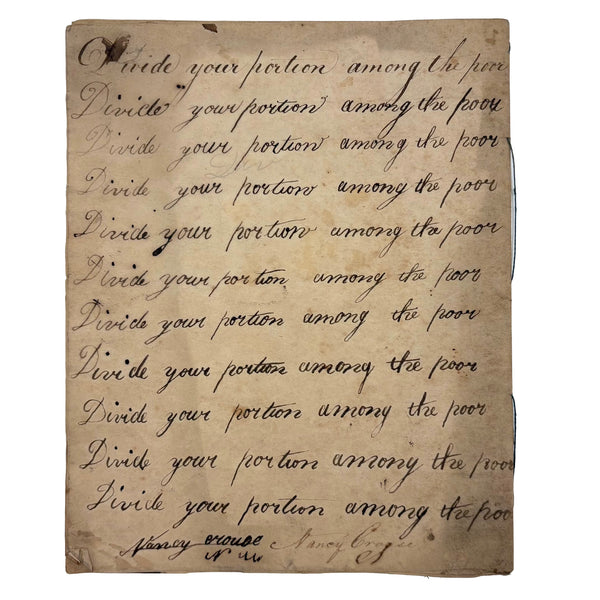 Divide your portion among the poor
Divide your portion among the poor
Divide your portion among the poor
Divide your portion among the poor
Divide your portion among the poor
Divide your portion among the poor
Divide your portion among the poor
Divide your portion among the poor
Divide your portion among the poor
Divide your portion among the poor
Divide your portion among the poo
Nancy crouse Nancy Crouse